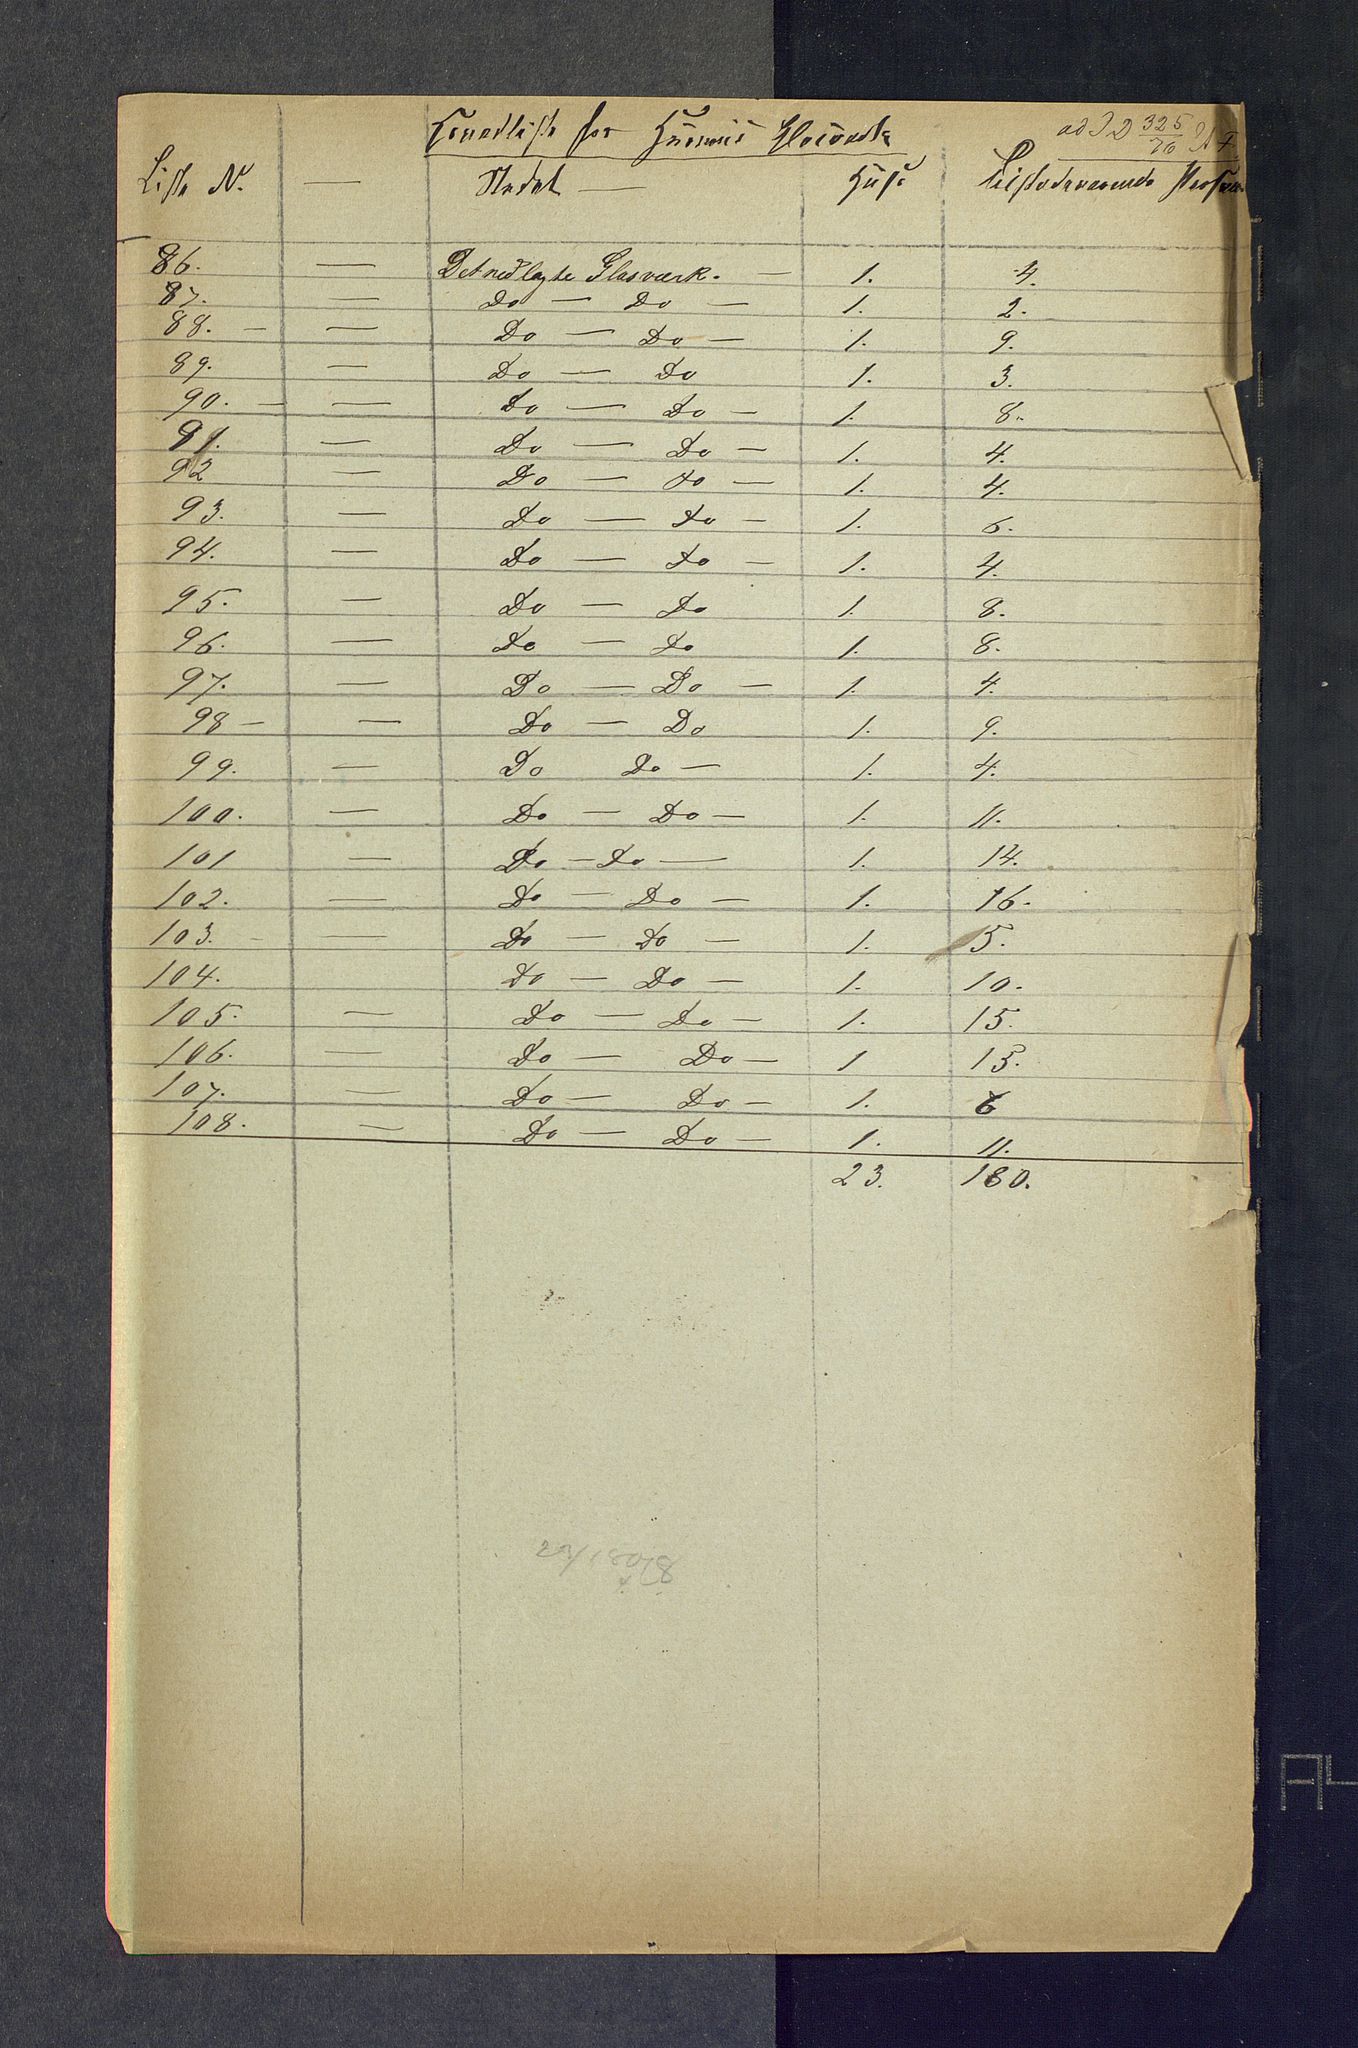 ad J D 325/76 A F.
Hovedliste for Hurums Glasværk
Liste N. — Stedet — Huse Tilstedeværende Person
86. — Det nedlagte Glasværk. — 1. 4.
87. — Do — Do — 1. 2.
88. — — Do — Do — 1. 9.
89. — Do — Do 1. 3.
90. — — Do — Do — 1. 8.
91. — Do — Do — 1. 4.
92 — Do — Do — 1. 4.
93. — Do — Do — 1. 6.
94. — Do — Do — 1. 4.
95. — Do — Do 1. 8.
96. — Do — Do 1. 8.
97. — Do — Do — 1. 4.
98 — — Do — Do 1. 9.
99. — Do Do — 1. 4.
100. — Do — Do — 1. 11.
101 — Do — Do — 1. 14.
102. — Do — Do — 1. 16.
103. — — Do — Do — 1. 5.
104. Do — Do — 1. 10.
105. — Do — Do — 1. 15.
106. — Do — Do — 1 15.
107. — Do — Do — 1. 6
108. — Do — Do — 1. 11.
23. 180.
A4